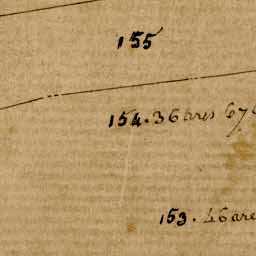 155
154. 36 ares 67
153. 46 are